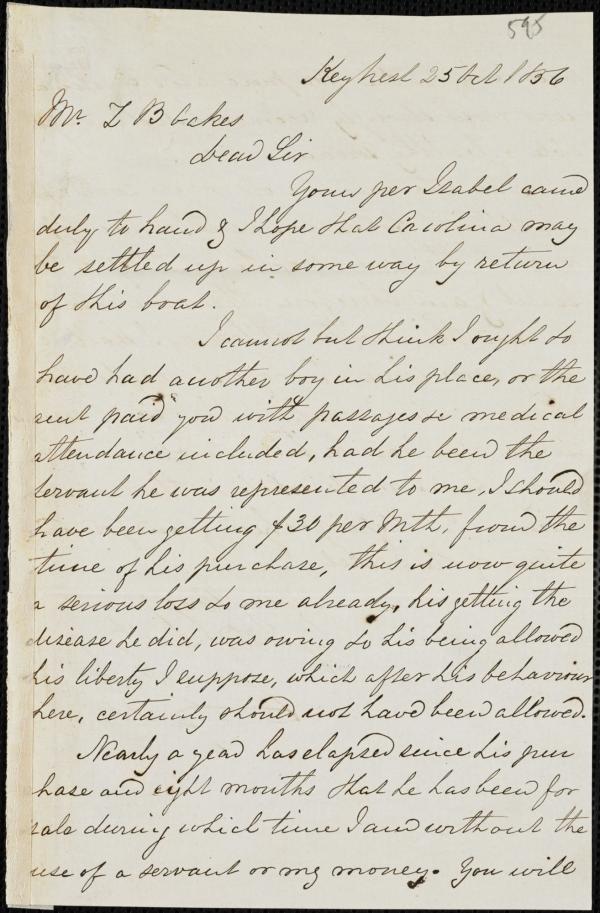 595
Key West 25 Oct 1856
Mr. Z B Oakes
Dear Sir
Yours per Isabel came
duly to hand & I hope that Carolina may
be settled up in some way by return
of this boat.
I cannot but think I ought to
have had another boy in his place, or the
amt paid you with passages & medical
attendance included, had he been the
servant he was represented to me, I should
have been getting $30 per Mth, from the
time of his purchase, this is now quite
a serious loss to me already, his getting the
disease he did, was owing to his being allowed
his liberty I suppose, which after his behaviour
here, certainly should not have been allowed.
Nearly a year has elapsed since his pur
chase and eight months that he has been for
sale during which time I am without the
use of a servant or my money. You will